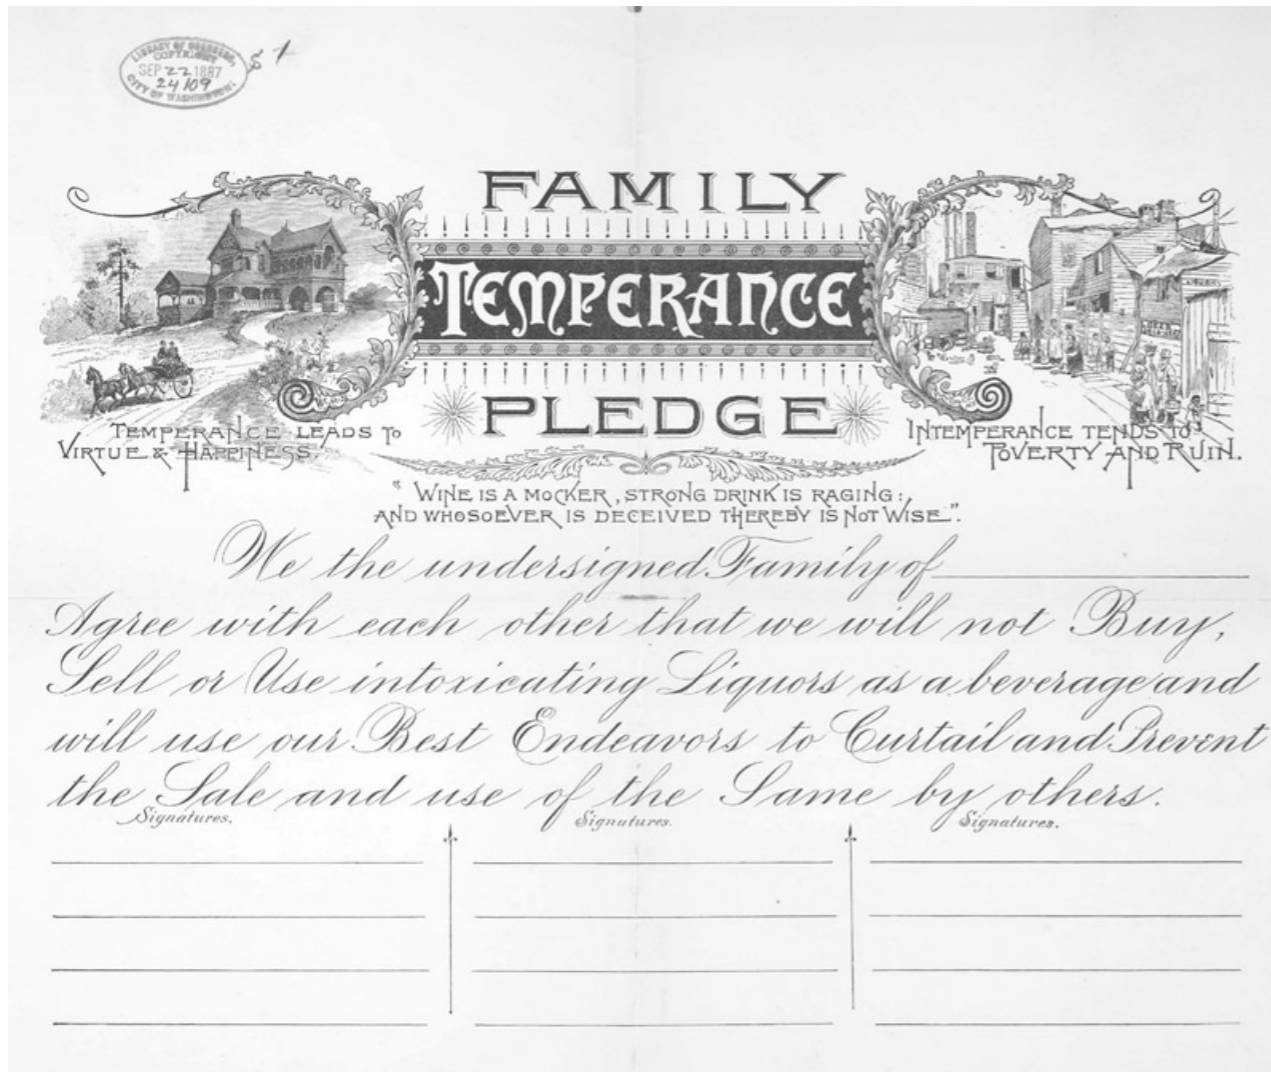 LIBRARY OF CONGRESS,
COPYRIGHT
SEP 22 1887
24109
CITY OF WASHINGTON.
FAMILY
TEMPERANCE
PLEDGE
TEMPERANCE LEADS TO
VIRTUE & HAPPINESS.
INTEMPERANCE TENDS TO
POVERTY AND RUIN.
"WINE IS A MOCKER, STRONG DRINK IS RAGING:
AND WHOSOEVER IS DECEIVED THEREBY IS NOT WISE".
We the undersigned Family of
Agree with each other that we will not Buy,
Sell or Use intoxicating Liquors as a beverage and
will use our Best Endeavors to Curtail and Prevent
the Sale and use of the Same by others.
Signatures. Signatures. Signatures.